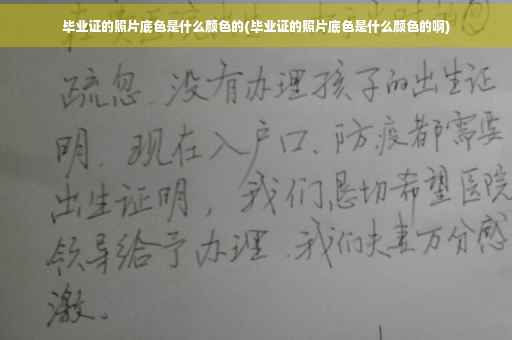 毕业证的照片底色是什么颜色的(毕业证的照片底色是什么颜色的啊)
疏忽、没有办理孩子的出生证
明、现在入户口、防疫都需要
出生证明，我们恳切希望医院
领导给予办理、我们夫妻万分感
激。